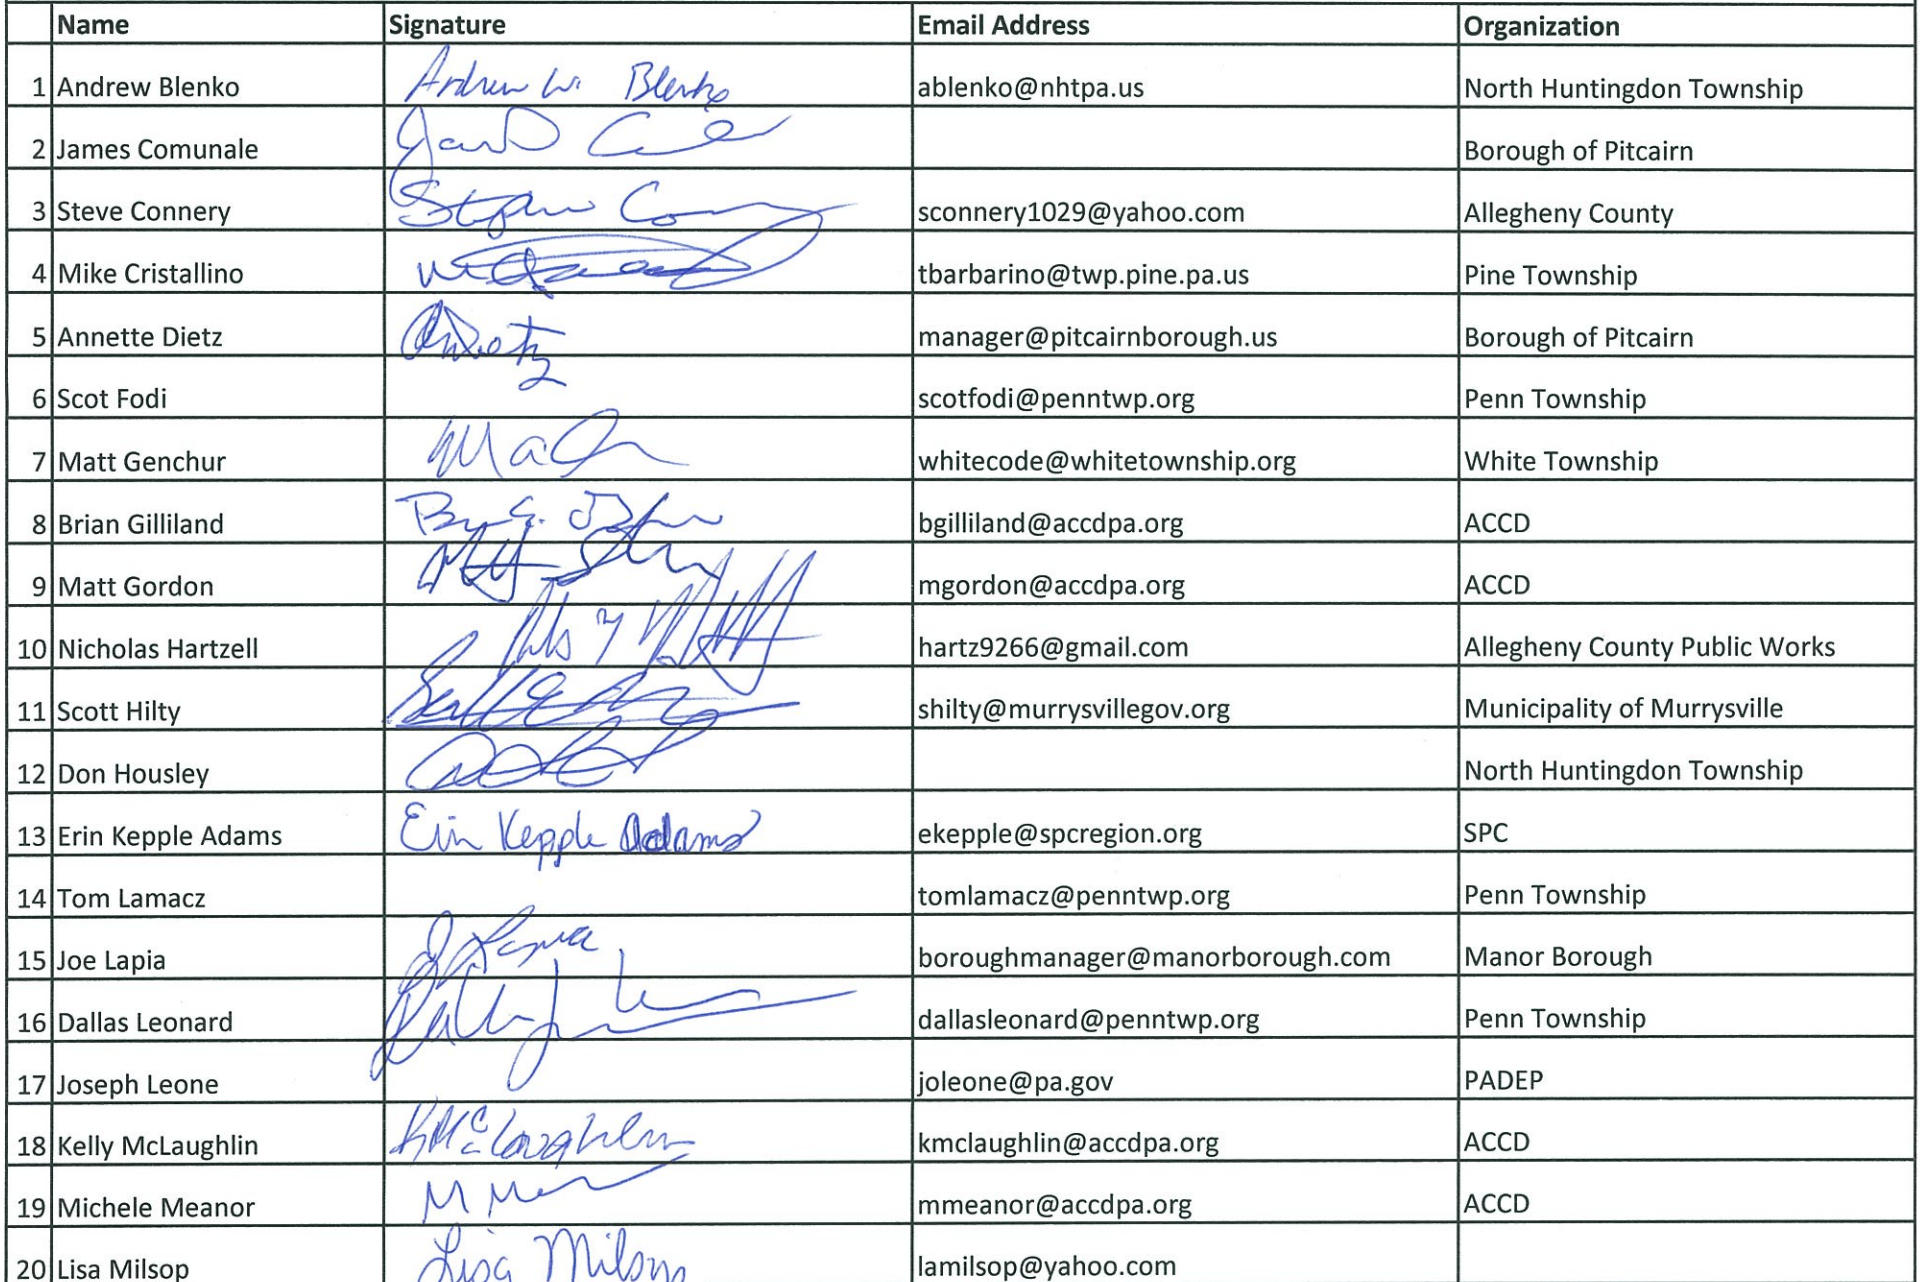 Name Signature Email Address Organization
1 Andrew Blenko Andrew W. Blenko ablenko@nhtpa.us North Huntingdon Township
2 James Comunale Borough of Pitcairn
3 Steve Connery sconnery1029@yahoo.com Allegheny County
4 Mike Cristallino tbarbarino@twp.pine.pa.us Pine Township
5 Annette Dietz manager@pitcairnborough.us Borough of Pitcairn
6 Scot Fodi scotfodi@penntwp.org Penn Township
7 Matt Genchur whitecode@whitetownship.org White Township
8 Brian Gilliland bgilliland@accdpa.org ACCD
9 Matt Gordon mgordon@accdpa.org ACCD
10 Nicholas Hartzell hartz9266@gmail.com Allegheny County Public Works
11 Scott Hilty shilty@murrysvillegov.org Municipality of Murrysville
12 Don Housley North Huntingdon Township
13 Erin Kepple Adams Erin Kepple Adams ekepple@spcregion.org SPC
14 Tom Lamacz tomlamacz@penntwp.org Penn Township
15 Joe Lapia J Lapia boroughmanager@manorborough.com Manor Borough
16 Dallas Leonard dallasleonard@penntwp.org Penn Township
17 Joseph Leone joleone@pa.gov PADEP
18 Kelly McLaughlin KMcLaughlin kmclaughlin@accdpa.org ACCD
19 Michele Meanor mmeanor@accdpa.org ACCD
20 Lisa Milsop Lisa Milsop lamilsop@yahoo.com